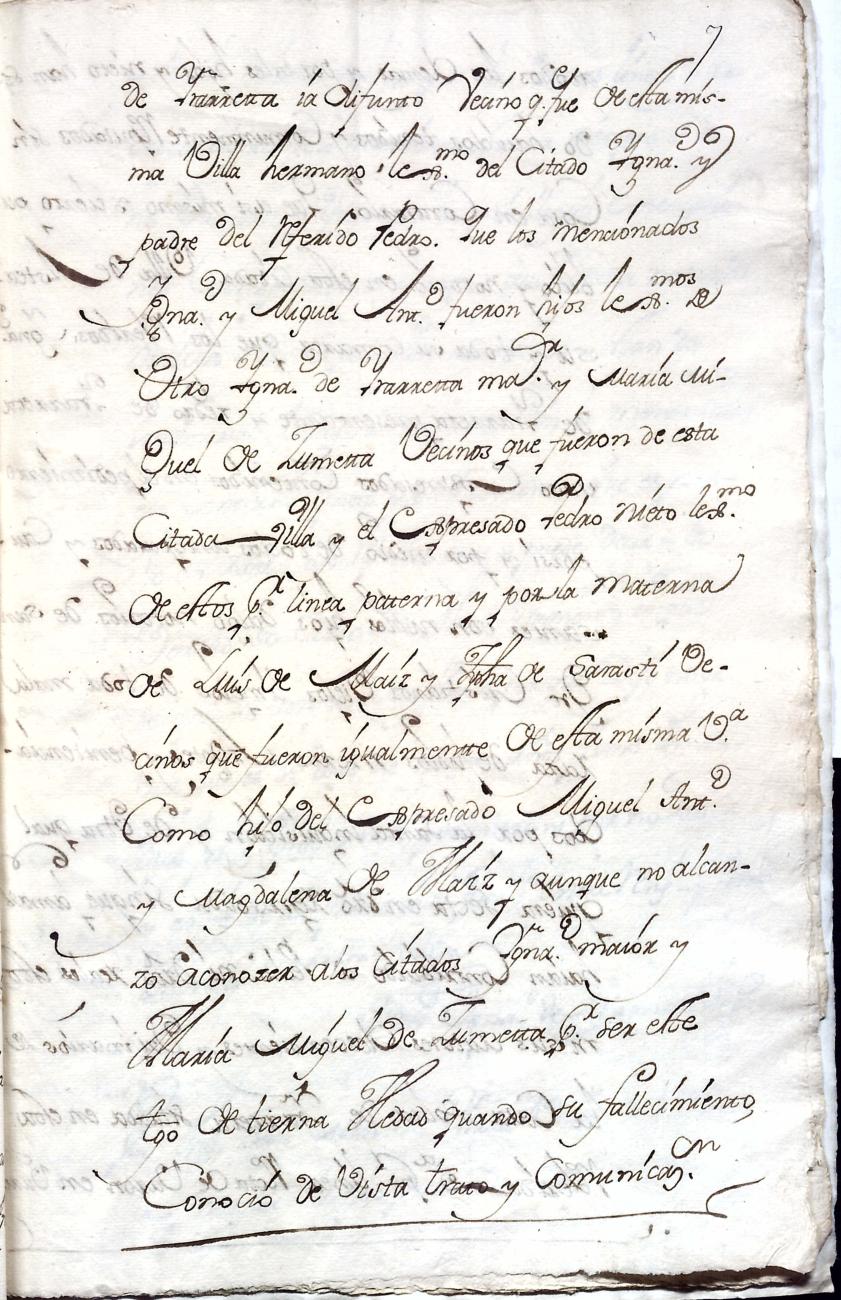 7
de Yrarretta ia difunto Vecino q.e fue de esta mis-
ma Villa hermano lexmo. del Citado Ygna.o y
padre del Referido Pedro. Que los mencionados
Ygna.o y Miguel Ant.o fueron hijos lexmos. de
Otro Ygna.o de Yrarretta maor. y María Mi-
quel de Zumetta Vecinos que fueron de esta
Citada Villa y el Expresado Pedro Nieto lexmo.
de estos pr. linea paterna y por la Materna
de Luis de Maiz y de Sarasti Ve-
cinos que fueron igualmente de esta misma V.a
Como hijo del Expresado Miguel Ant.o
y Magdalena de Maiz y aunque no alcan-
zo aconozer alos Citados Ygna.o maior y
María Miguel de Zumetta pr. ser este
tgo de tierna Hedad quando su fallecimiento,
Conoció de Vista trato y Comunicaz.on